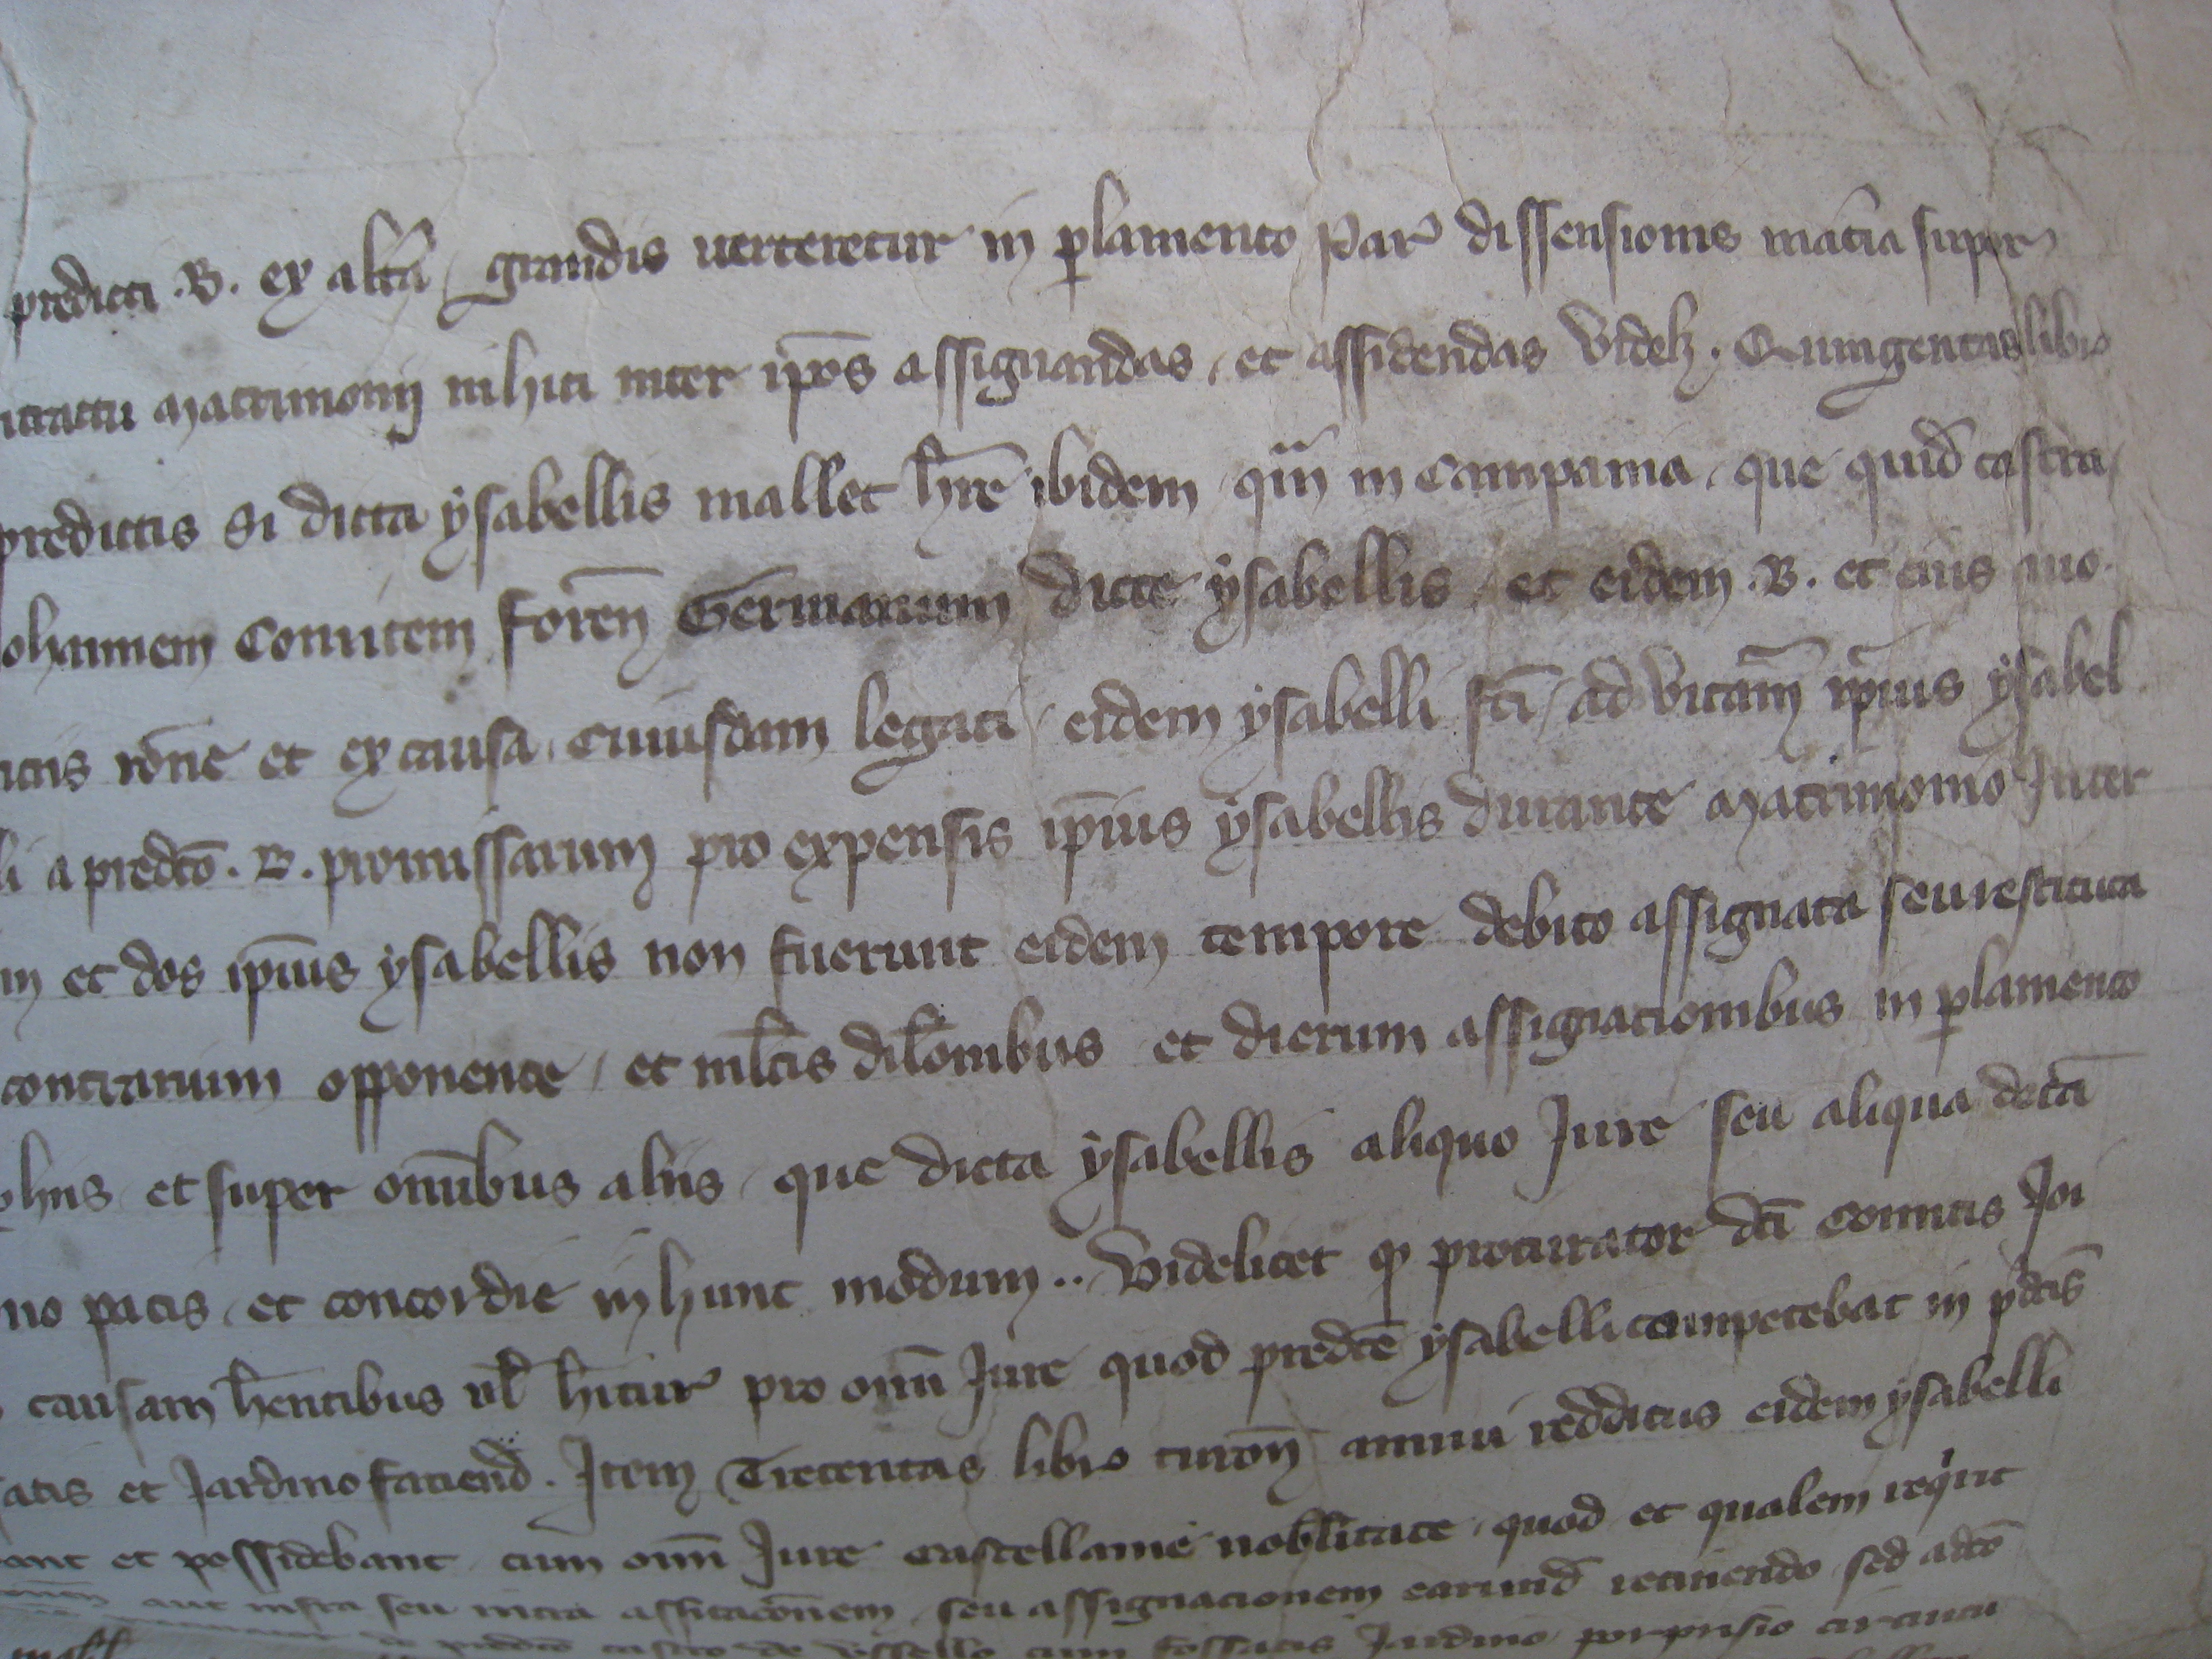 predicti .B. ex altā grandis uerteretur in plamento Par dissensionis mātia super
matrimonii inhiti inter ip̄os assignandas, et assidendas Videlz. Quingentas libr
predictis Si dicta ysabellis mallet hr̄e ibidem qm̄ in Campania, que quid castra
ohannem Comitem foren̄ Germanum dicte ysabellis, et eidem .B. et eius
rōne et ex causa cuiusdam legati, eidem ysabelli fc̄i, ad vitam ip̄ius ysabel
li a predc̄o .B. promissarum pro expensis ip̄ius ysabellis durante matrimonio Inter
m et dos ip̄ius ysabellis non fuerunt eidem tempore debito assignata seu restituta
contrarium opponente, et ml̄tis dil̄onibus et dierum assignationibus in plamento
et super om̄ibus aliis, que dicta ysabellis aliquo Jure seu aliqua dc̄ta
no pacis, et concordie in hunc modum.. Videlicet q procurator dc̄i Comitis Joi
causam hēntibus ul̄ hītur pro om̄i Jure quod predc̄e ysabelli competebat in pdc̄is
atis et Jardino faciend. Item Trecentas libr turon̄ annui redditus eidem ysabelli
ant et possidebant, cum om̄i Jure Castellanie nobl̄itate, quod et qualem reqrit
aut infra seu intra assitac̄onem, seu assignacionem earund retinendo, sed adc̄o
castro de Vssello cum fossatis Jardino porprisio